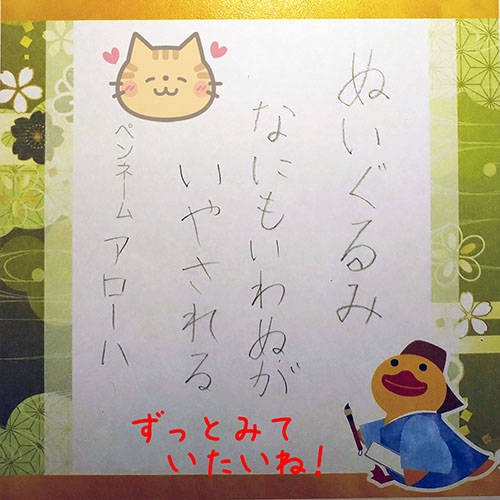 ぬいぐるみ
なにもいわぬが
いやされる
ペンネーム アローハ
ずっとみて
いたいね!